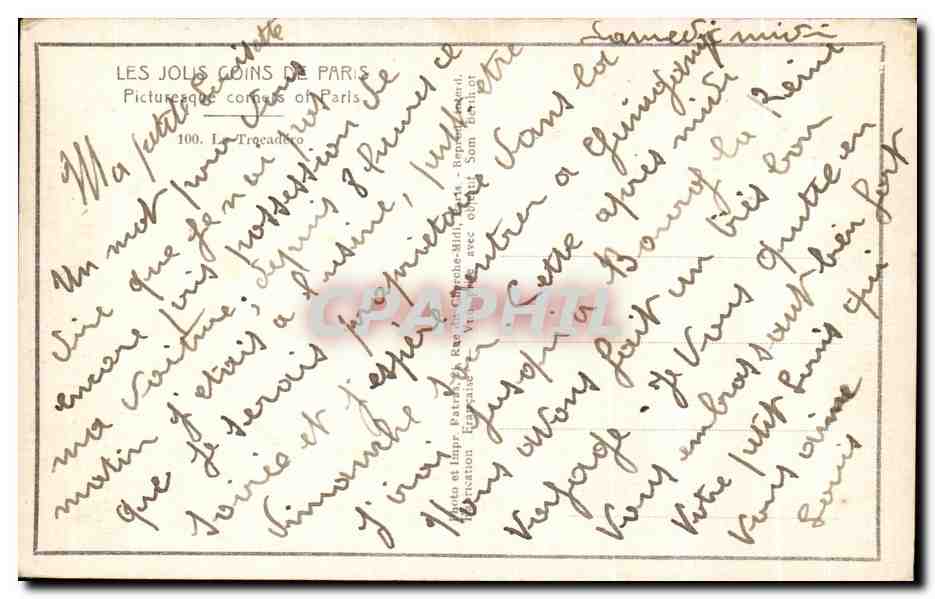 Samedi midi
LES JOLIS COINS DE PARIS
Picturesque corners of Paris
100. Le Trocadéro
Ma petite Louisette
Un mot pour vous
dire que je n'ai pas
encore pris possession de
ma voiture, depuis 8 heures ce
matin j'étais à l'usine, peut-être
que je serais propriétaire dans la
soirée et j'espère rentrer a Guingamp
Dimanche soir. Cette après midi
j'irai jusqu'a Bourg la Reine
Nous avons fait un très bon
voyage. Je vous quitte en
vous embrassant bien fort
Votre petit Louis qui
vous aime
Louis
Photo et Impr. Patras, Rue du Cherche-Midi, Paris. - Reprod. interd.
Fabrication Française - Vue prise avec objectif Som Berthiot
CPAPHIL